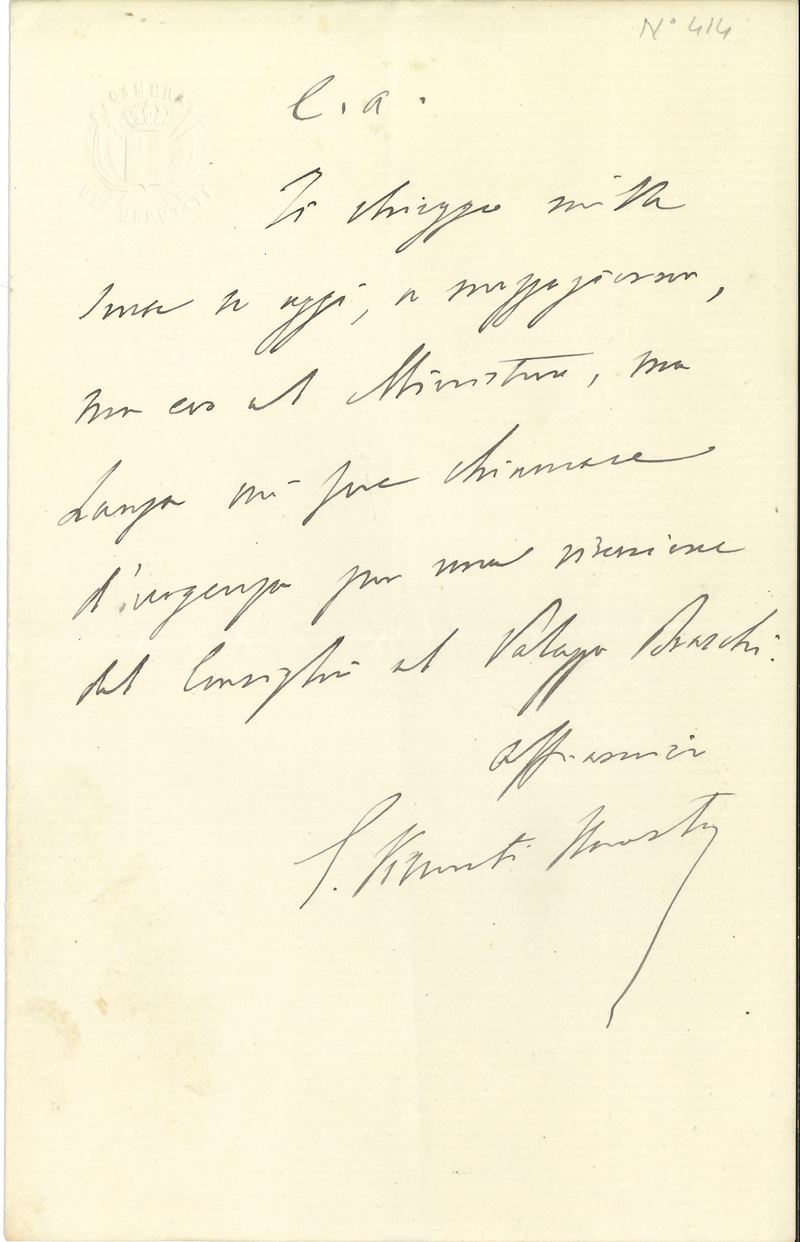 N° 414
CAMERA
DEI DEPUTATI
C. a.
Ti chieggo mille
scuse se oggi, a mezzogiorno,
non ero al Ministero, ma
Lanza mi fece chiamare
d'urgenza per una riunione
del Consiglio al Palazzo Braschi.
aff. amico
E. Visconti Venosta